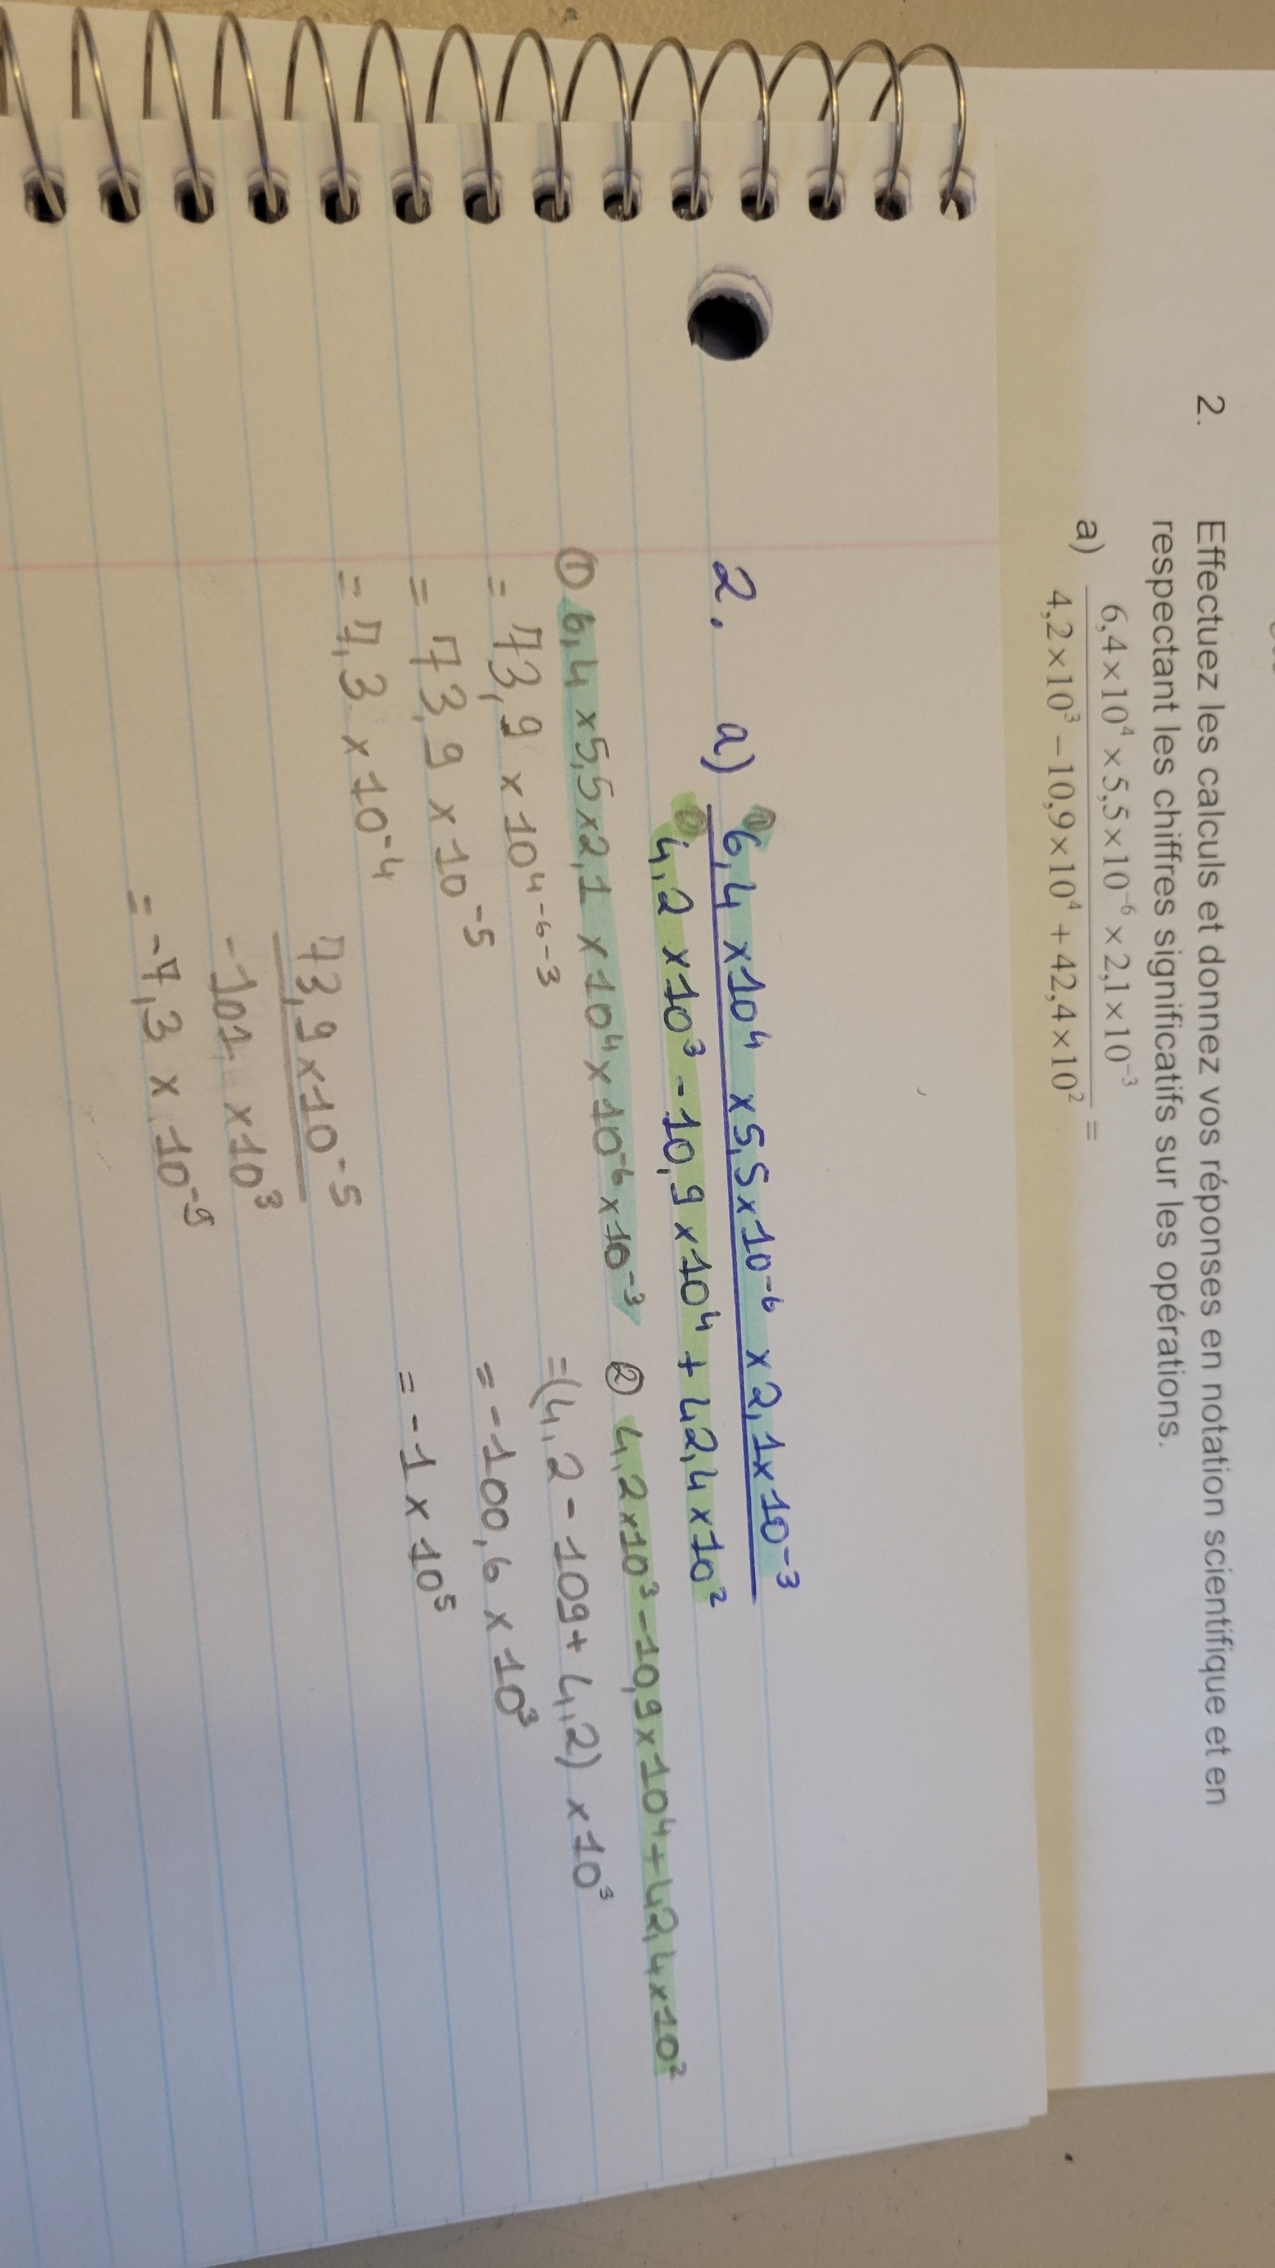 2. Effectuez les calculs et donnez vos réponses en notation scientifique et en
respectant les chiffres significatifs sur les opérations.
a) 6,4×10⁴ × 5,5×10⁻⁶ × 2,1×10⁻³ =
4,2×10³ − 10,9×10⁴ + 42,4×10²
2. a) ① 6,4 ×10⁴ ×5,5×10⁻⁶ ×2,1×10⁻³
② 4,2 ×10³ - 10,9 ×10⁴ + 42,4 ×10²
① 6,4 ×5,5×2,1 ×10⁴×10⁻⁶×10⁻³
= 73,9 ×10⁴⁻⁶⁻³
= 73,9 ×10⁻⁵
= 7,3 ×10⁻⁴
② 4,2×10³ - 10,9×10⁴ + 42,4×10²
=(4,2 - 109 + 4,2) ×10³
= -100,6 ×10³
= -1 ×10⁵
73,9×10⁻⁵
-101 ×10³
= -7,3 × 10⁻⁹